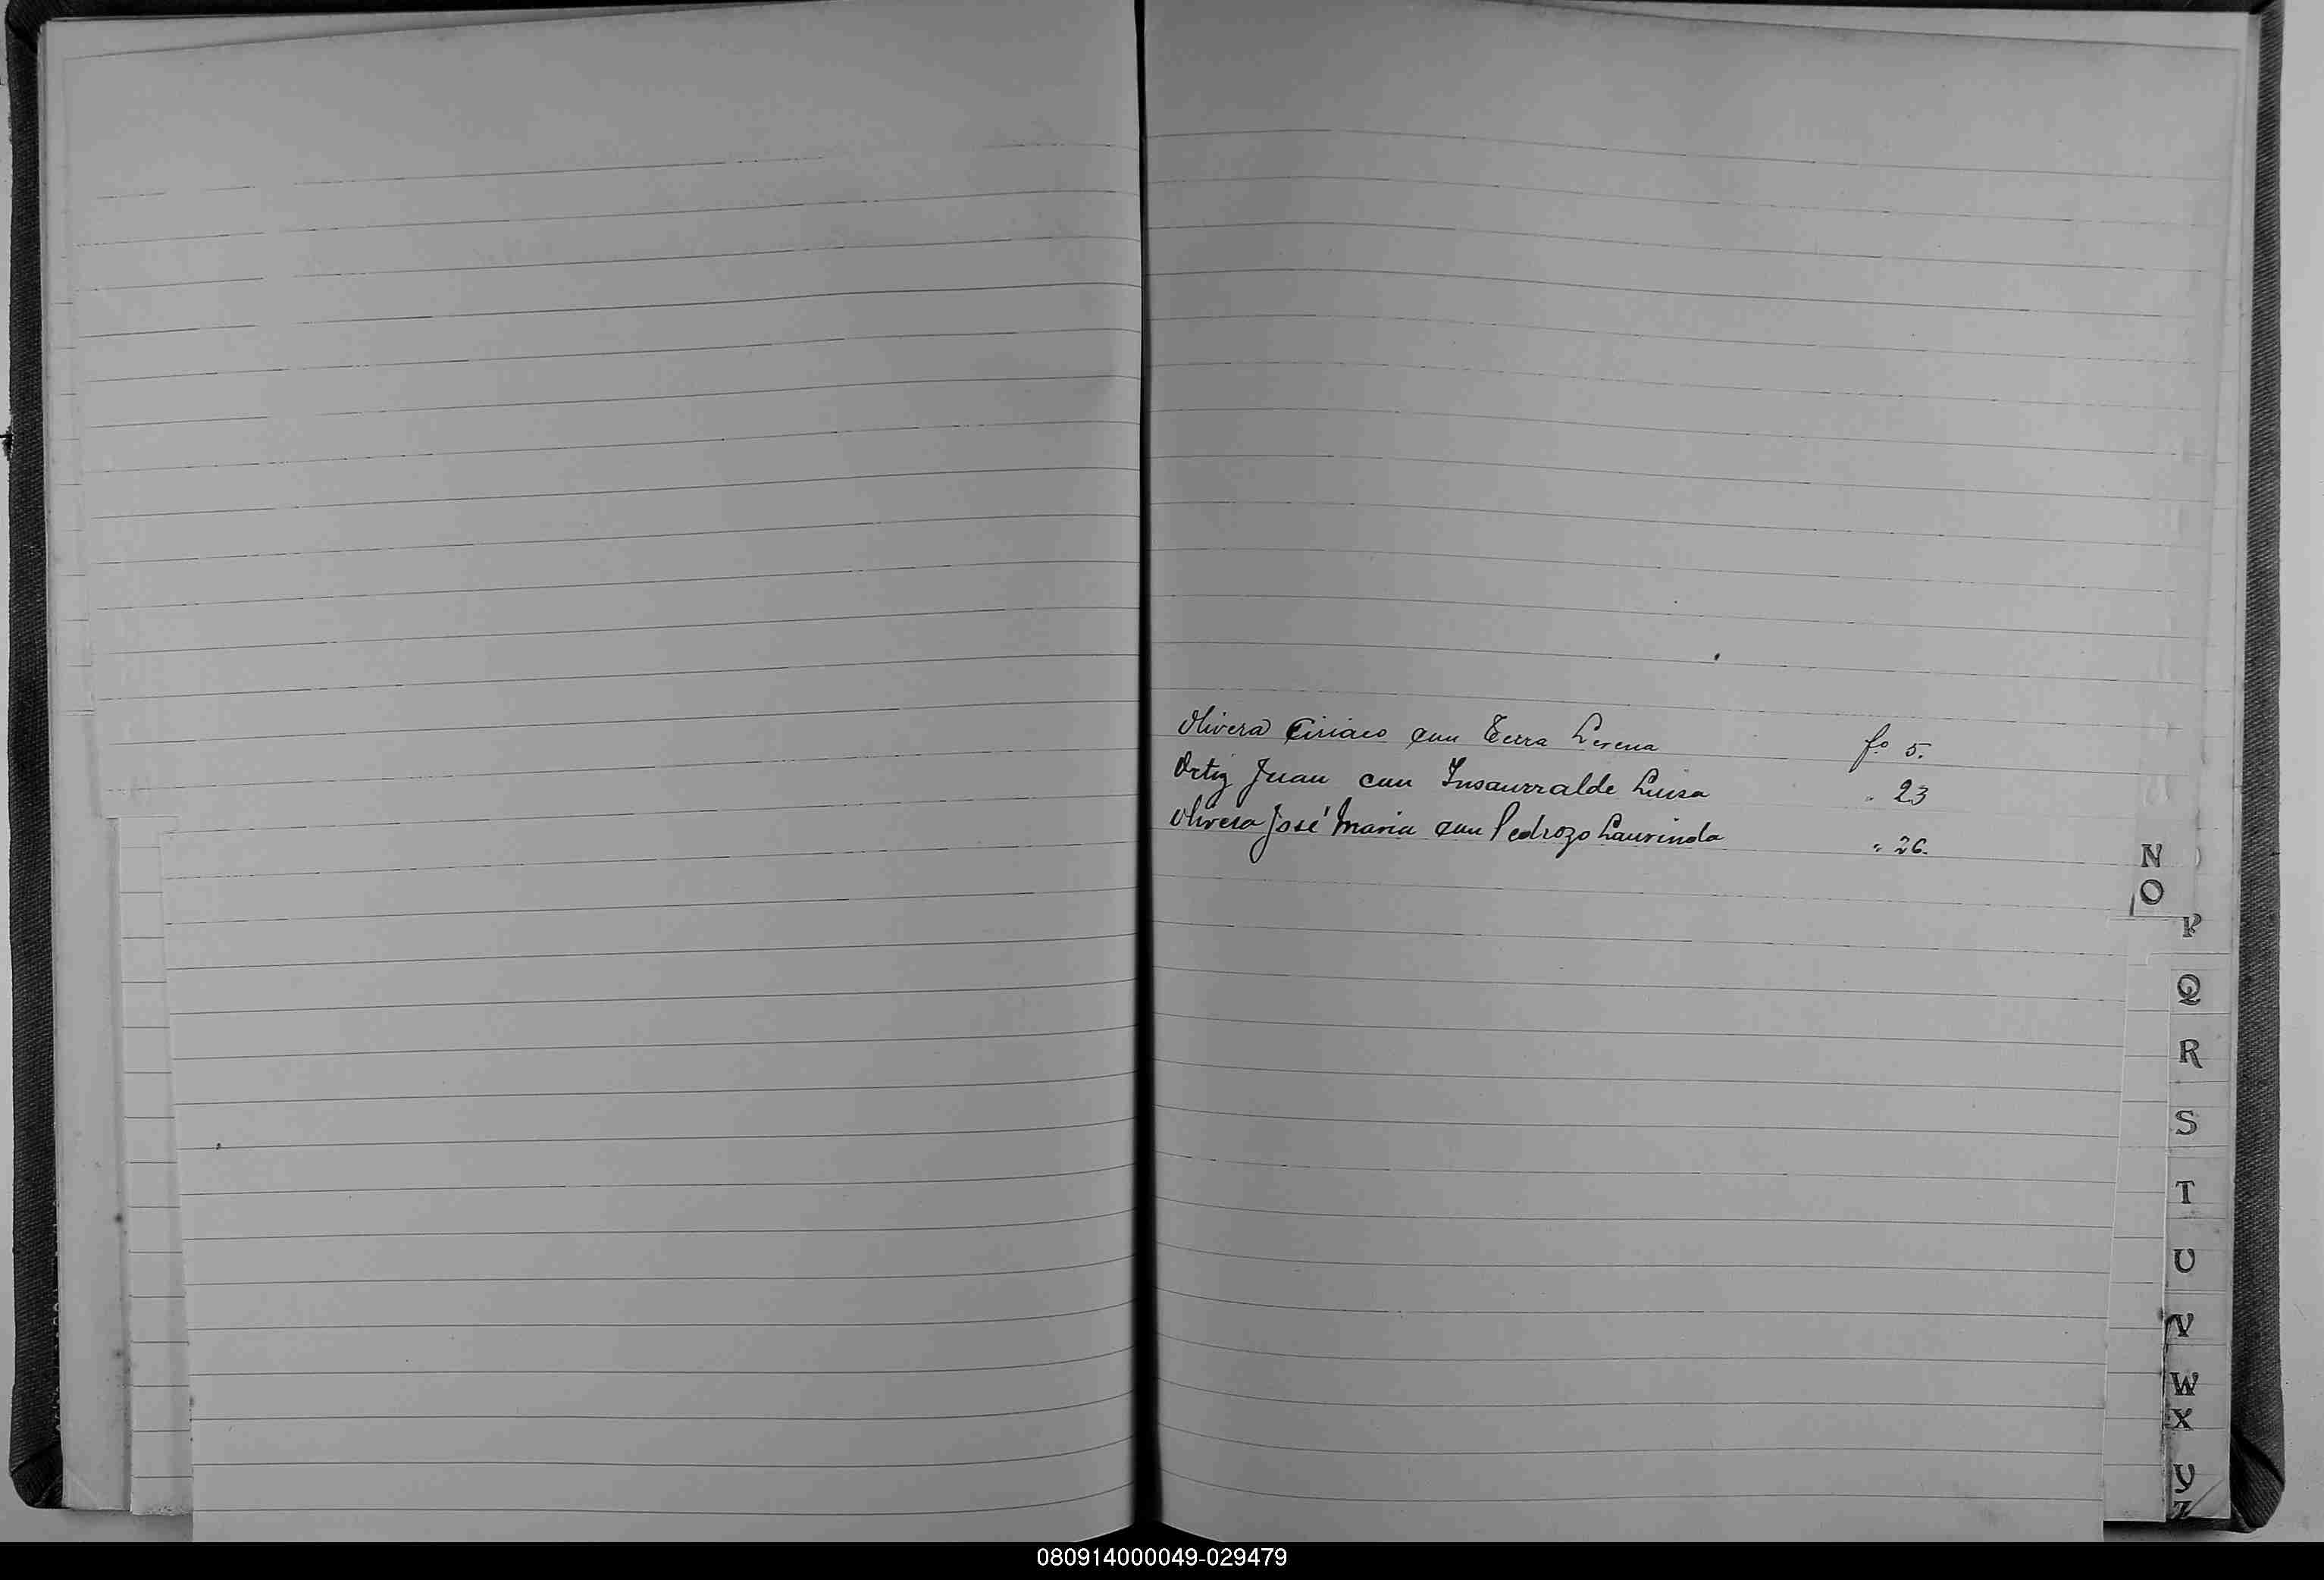 Olivera Ciriaco con Terra Lorena fo 5.
Ortiz Juan con Insaurralde Luisa " 23
Olivera José Maria con Pedrozo Laurinda " 26.
N
O
P
Q
R
S
T
U
V
W
X
Y
Z
080914000049-029479